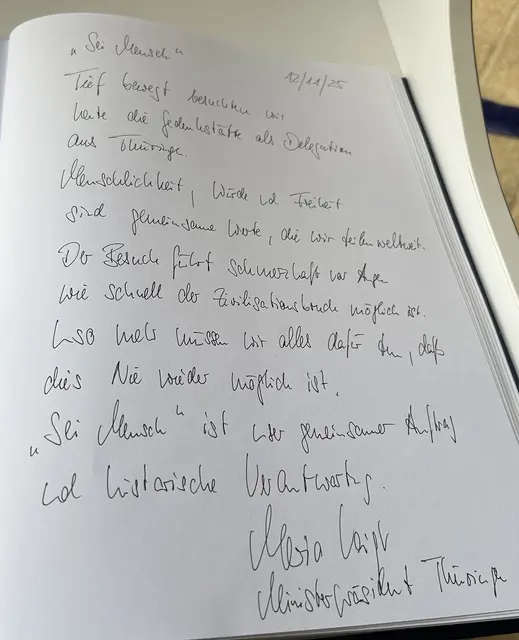 „Sei Mensch“
12/11/25
Tief bewegt besuchten wir
heute die Gedenkstätte als Delegation
aus Thüringen.
Menschlichkeit, Würde und Freiheit
sind gemeinsame Werte, die wir teilen weltweit.
Der Besuch führt schmerzhaft vor Augen
wie schnell der Zivilisationsbruch möglich ist.
Umso mehr müssen wir alles dafür tun, daß
dies Nie wieder möglich ist.
„Sei Mensch“ ist unser gemeinsamer Auftrag
und historische Verantwortung.
Mario Voigt
Ministerpräsident Thüringen